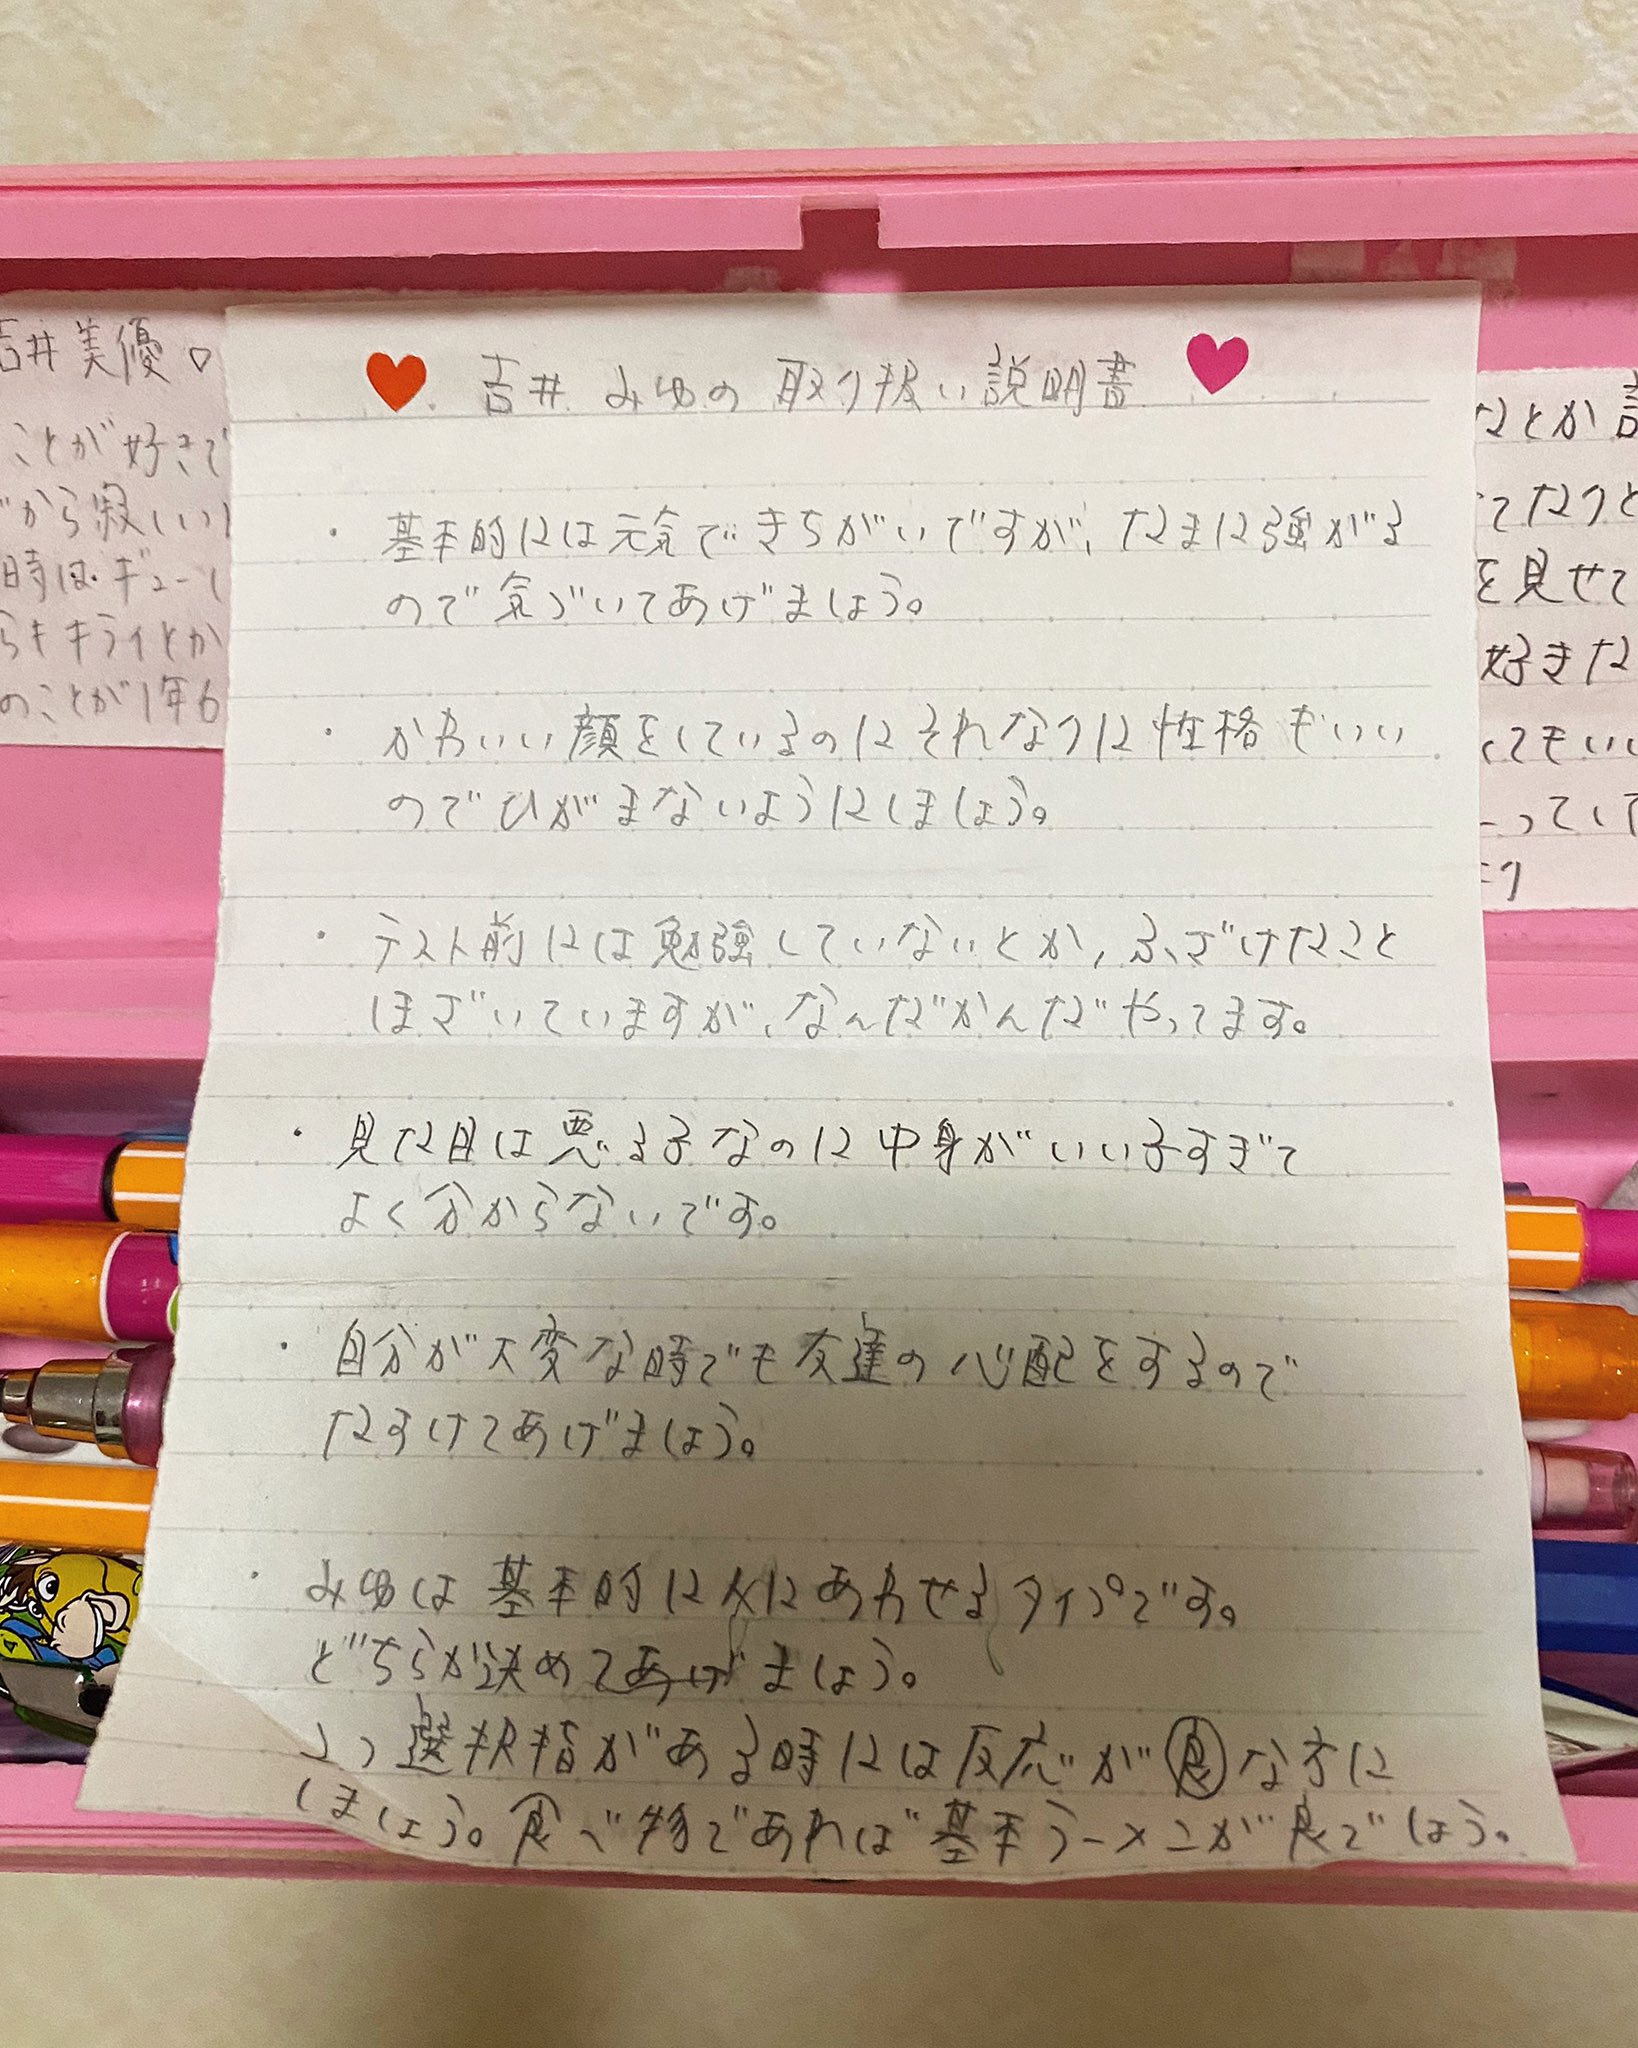 吉井 みゆの 取り扱い説明書
・基本的には元気できちがいですが、たまに強がる
ので気づいてあげましょう。
・かわいい顔をしているのにそれなりに性格もいい
のでひがまないようにしましょう。
・テスト前には勉強していないとか、ふざけたこと
ほざいていますが、なんだかんだやってます。
・見た目は悪る子なのに中身がいい子すぎて
よく分からないです。
・自分が大変な時でも友達の心配をするので
たすけてあげましょう。
・みゆは基本的に人にあわせるタイプです。
どちらか決めてあげましょう。
2つ選択指がある時には反応が良な方に
しましょう。食べ物であれば基本ラーメンが良でしょう。
吉井美優♡
ことが好きで
から寂しい
時は、ギューし
らキキライとか
のことが1年6
なとか
てなりと
を見せて
好きな
してもいい
っていて
より